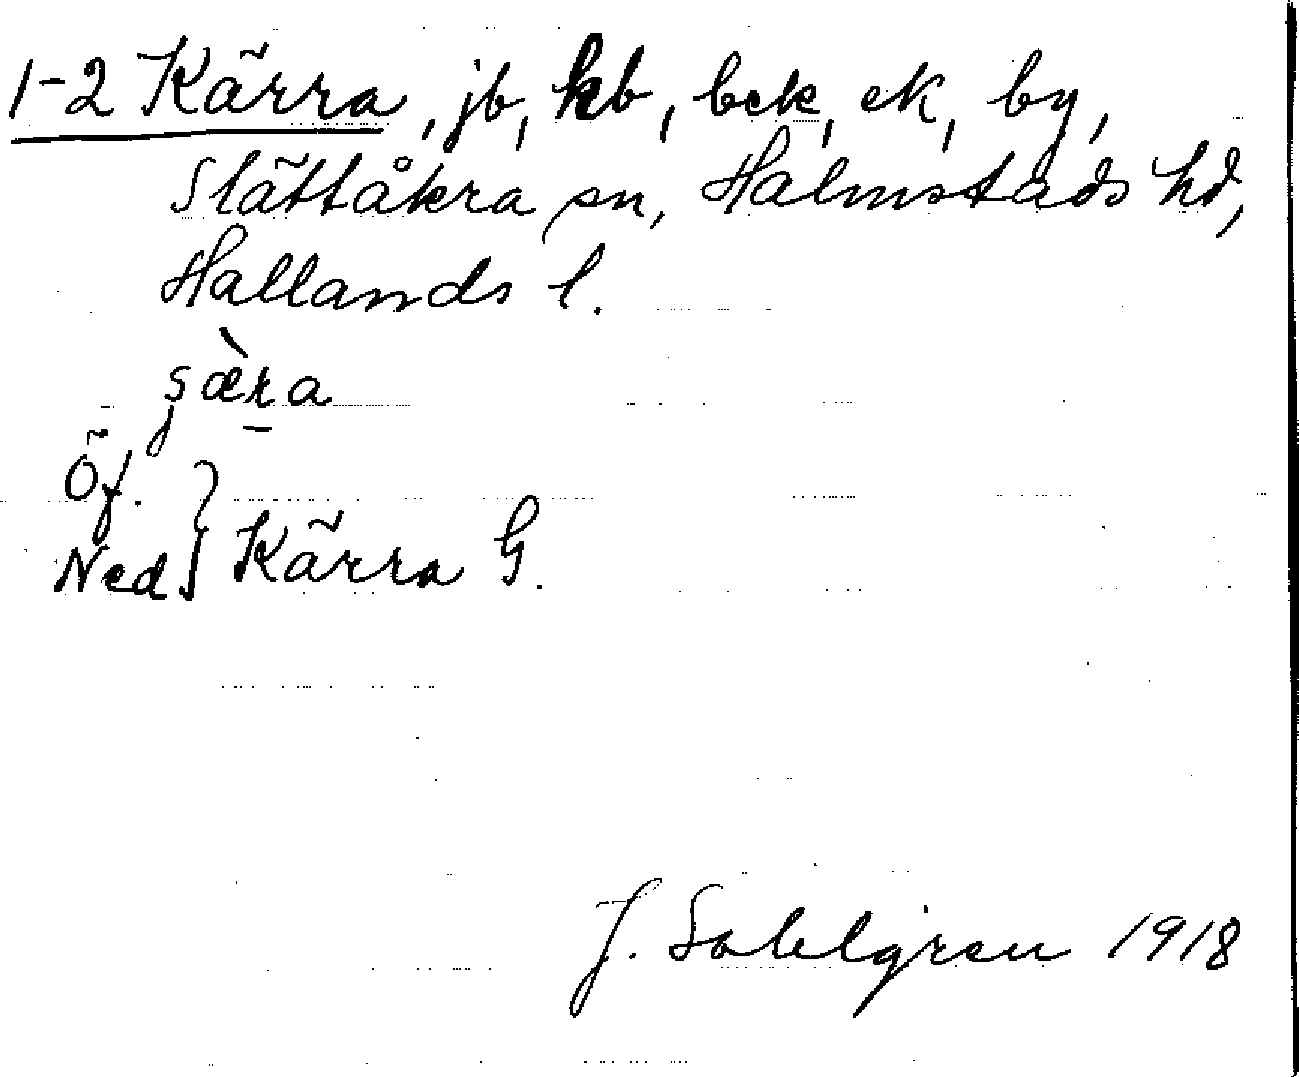 1-2 Kärra, jb, kb, bek, ek, by,
Slättåkra sn, Halmstads hd,
Hallands l.
şæ̀ra
Öf. }
Ned } Kärra G.
J. Sahlgren 1918